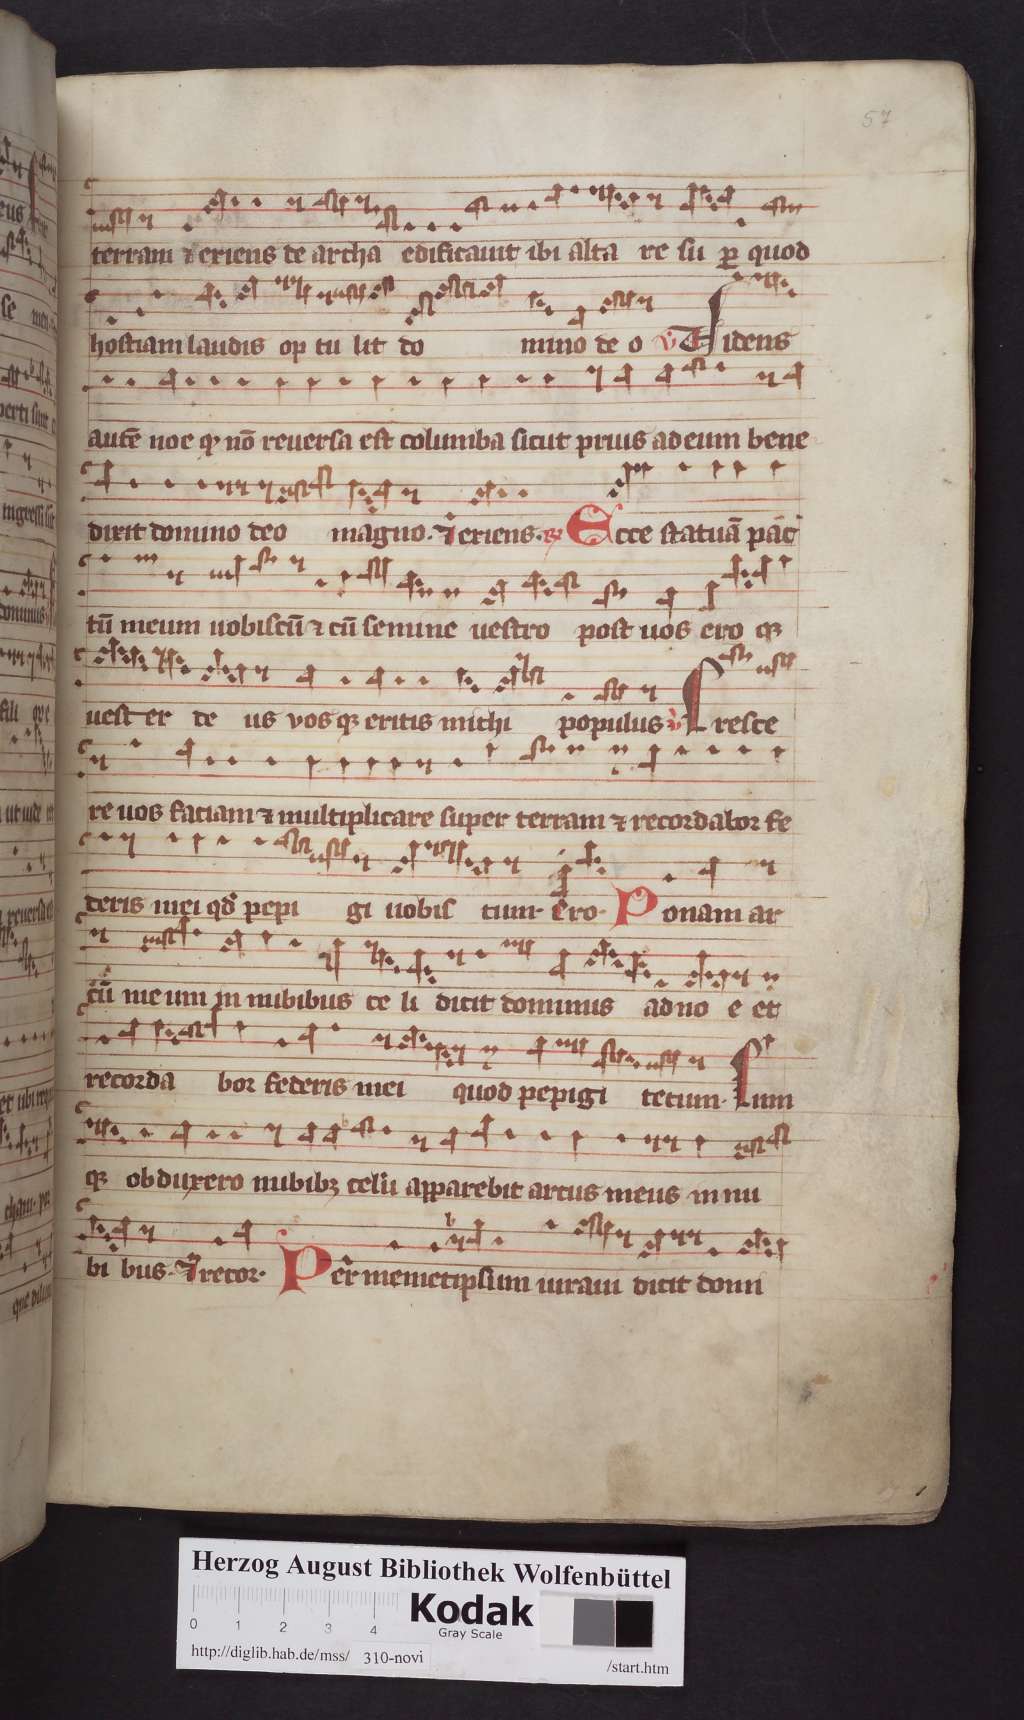 57
terram ⁊ exiens de archa edificauit ibi alta re su ꝑ quod
hostiam laudis op tu lit do mino de o v̄ Uidens
autē noe qꝫ nō reuersa est columba sicut prius ad eum bene
dixit domino deo magno. ⁊ exiens. Ecce statuā pac
tū meum uobiscū ⁊ cū semine uestro post uos ero qꝫ
uest er de us vos qꝫ eritis michi populus v̄ Cresce
re uos faciam ⁊ multiplicare super terram ⁊ recordabor fe
deris mei qd̄ pepi gi uobis cum. Ero. Ponam ar
cū me um in nubibus ce li dicit dominus ad no e et
recorda bor federis mei quod pepigi tecum. Cum
qꝫ obduxero nubibꝫ celū apparebit arcus meus in nu
bi bus. ⁊ recor. Per memetipsum iuraui dicit domi
Herzog August Bibliothek Wolfenbüttel
0 1 2 3 4 Kodak
Gray Scale
http://diglib.hab.de/mss/ 310-novi /start.htm